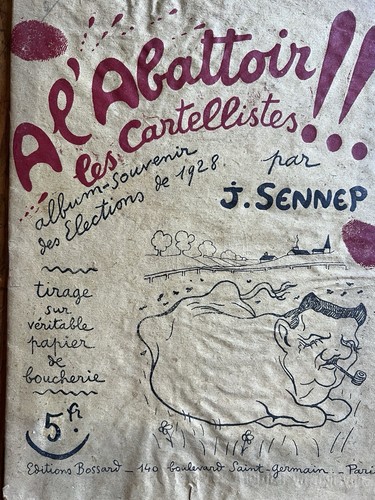 A l'Abattoir!!
les Cartellistes...
album-souvenir
des Elections de 1928.
par
J. SENNEP
tirage
sur
véritable
papier
de
boucherie
5 fr
Editions Bossard _ 140 boulevard Saint-Germain _ Paris